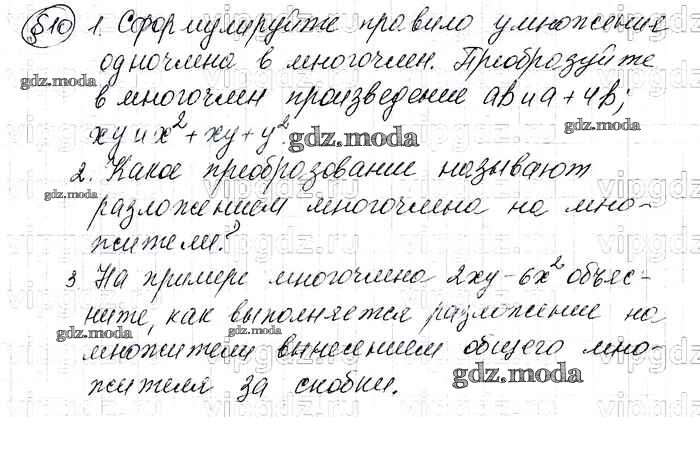 §10 1. Сформулируйте правило умножения
одночлена в многочлен. Преобразуйте
gdz.moda
в многочлен произведение ab и a + 4b;
xy и x² + xy + y²
gdz.moda
2. Какое преобразование называют
gdz.moda
разложением многочлена на мно-
жители?
3 На примере многочлена 2xy - 6x² объяс-
ните, как выполняется разложение на
gdz.moda gdz.moda
множители вынесением общего мно-
жителя за скобки.
gdz.moda
vipgdz.ru